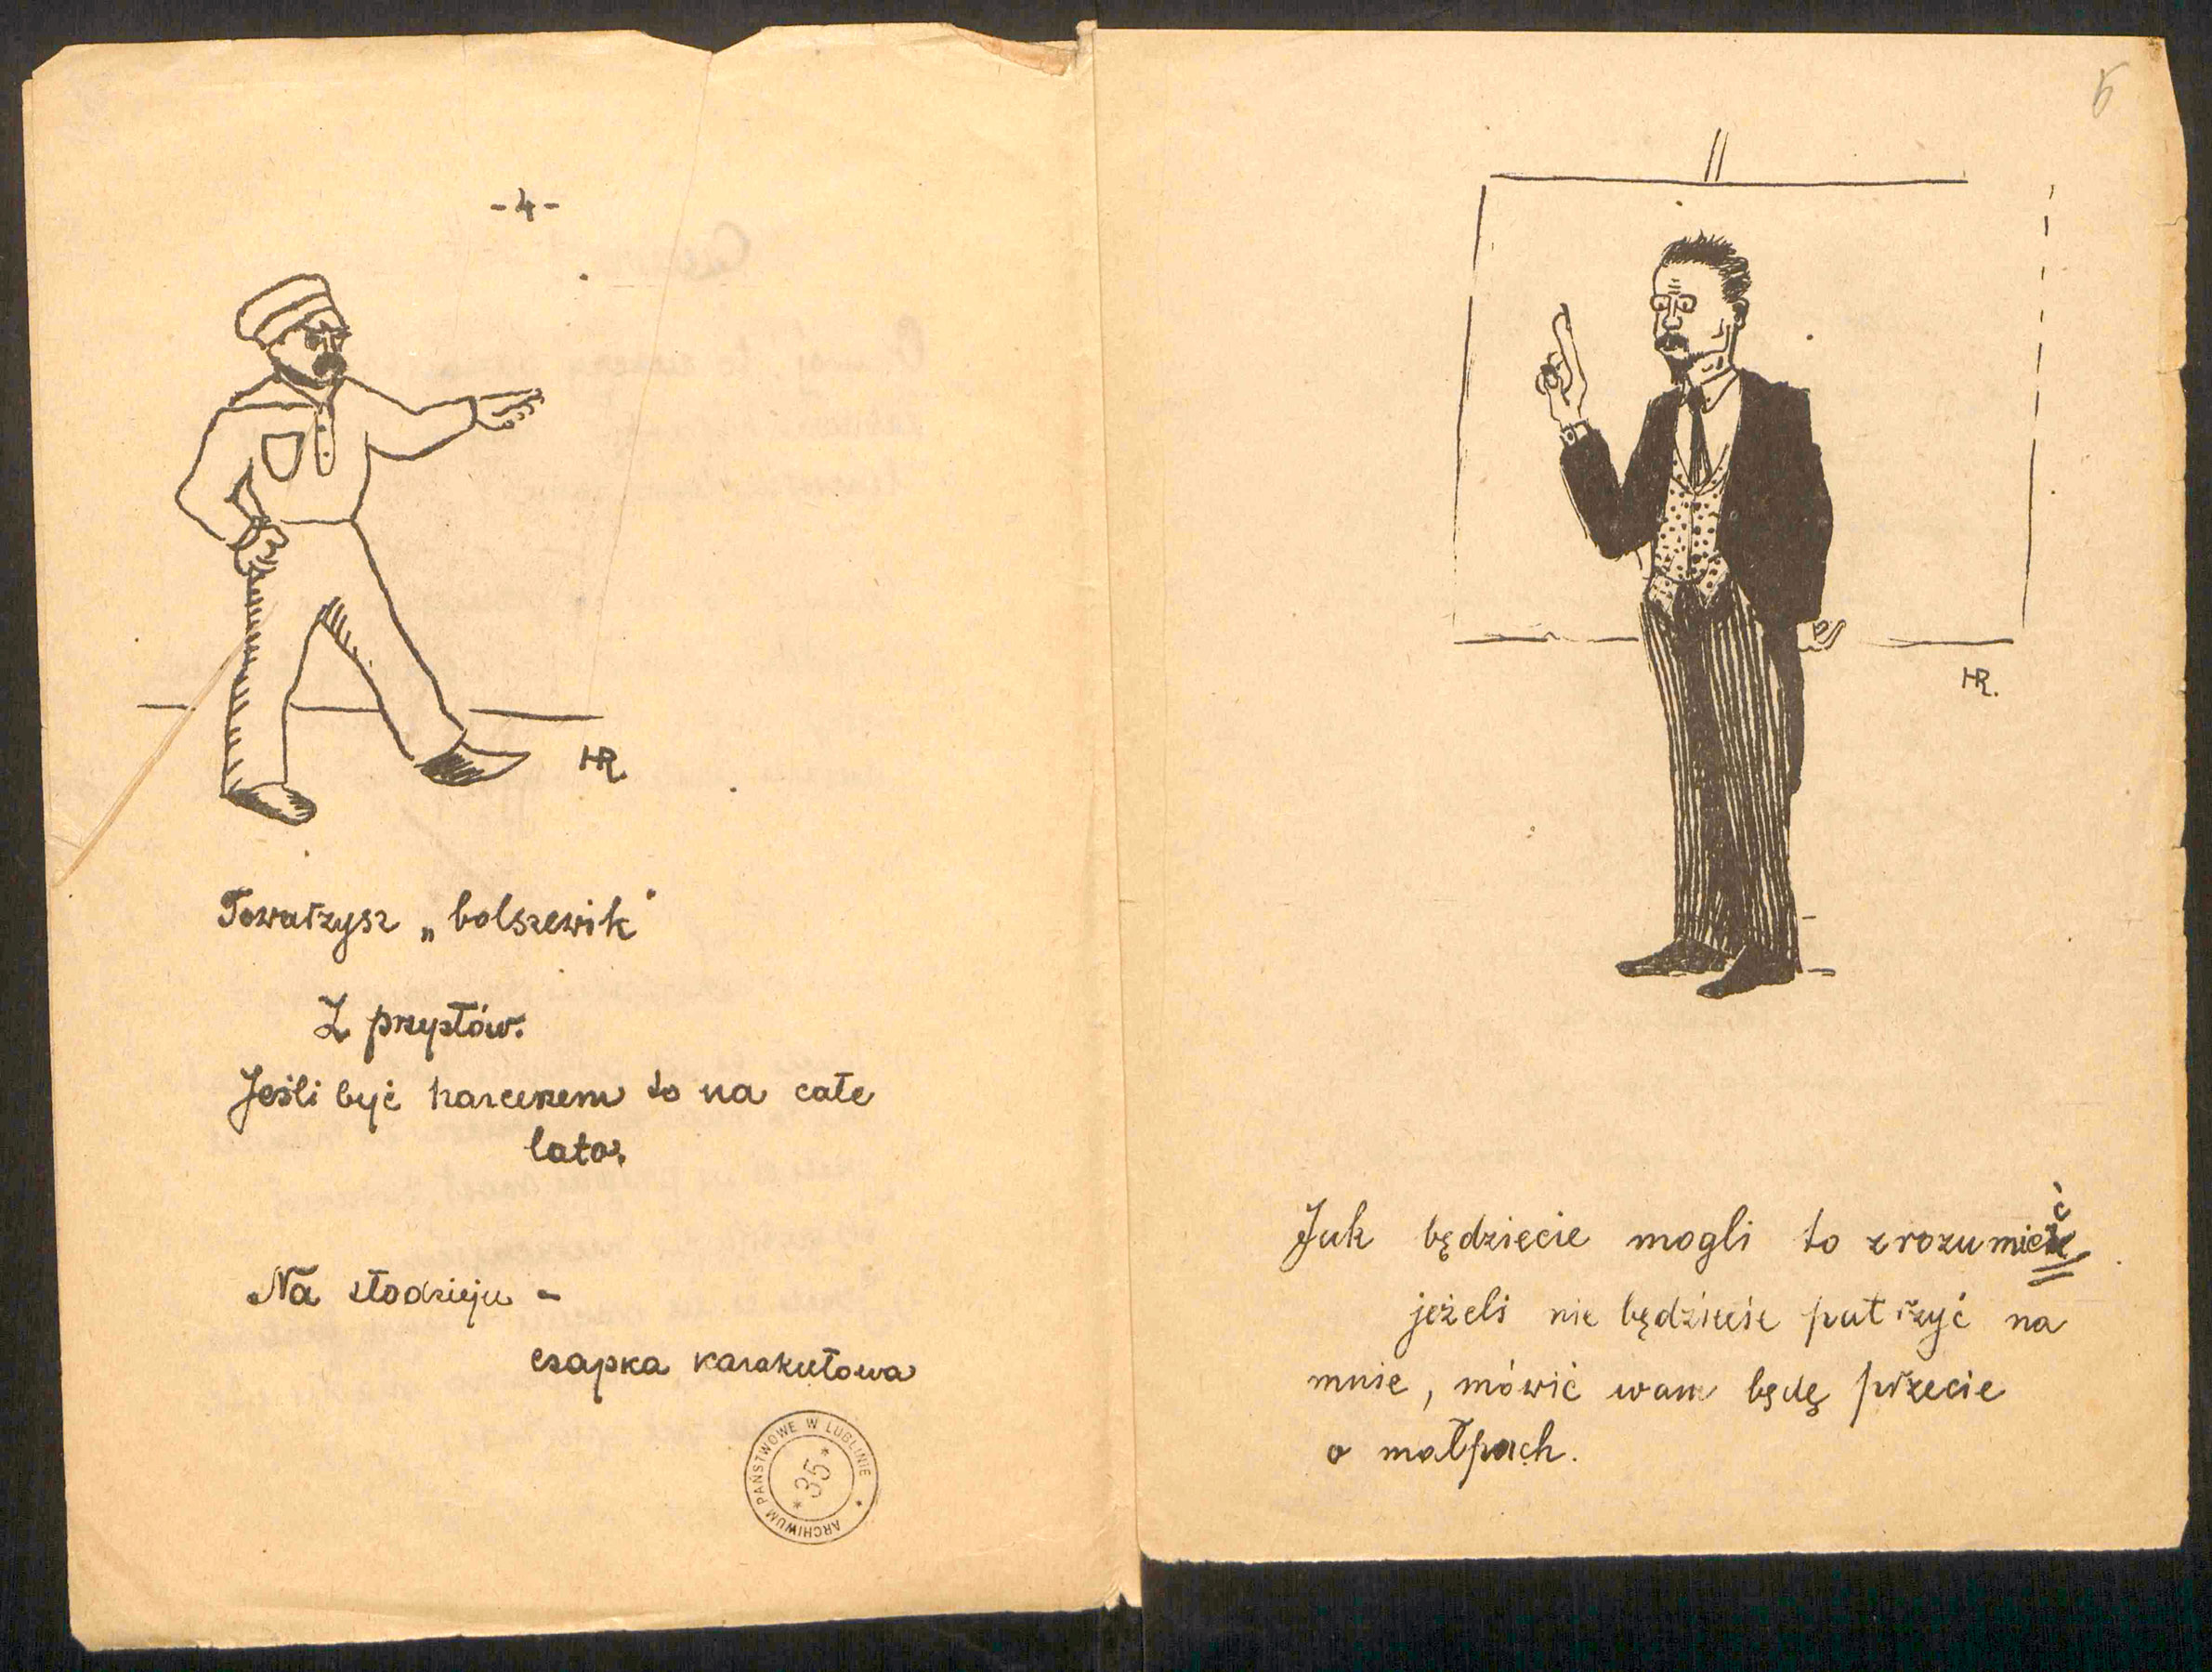 -4-
HR.
Towarzysz „bolszewik"
Z przysłów.
Jeśli być harcerzem to na całe
lato.
Na złodzieju -
czapka karakułowa
ARCHIWUM PAŃSTWOWE W LUBLINIE
* 35 *
5
HR.
Jak będziecie mogli to zrozumieć
jeżeli nie będziecie patrzyć na
mnie, mówić wam będę przecie
o małpach.